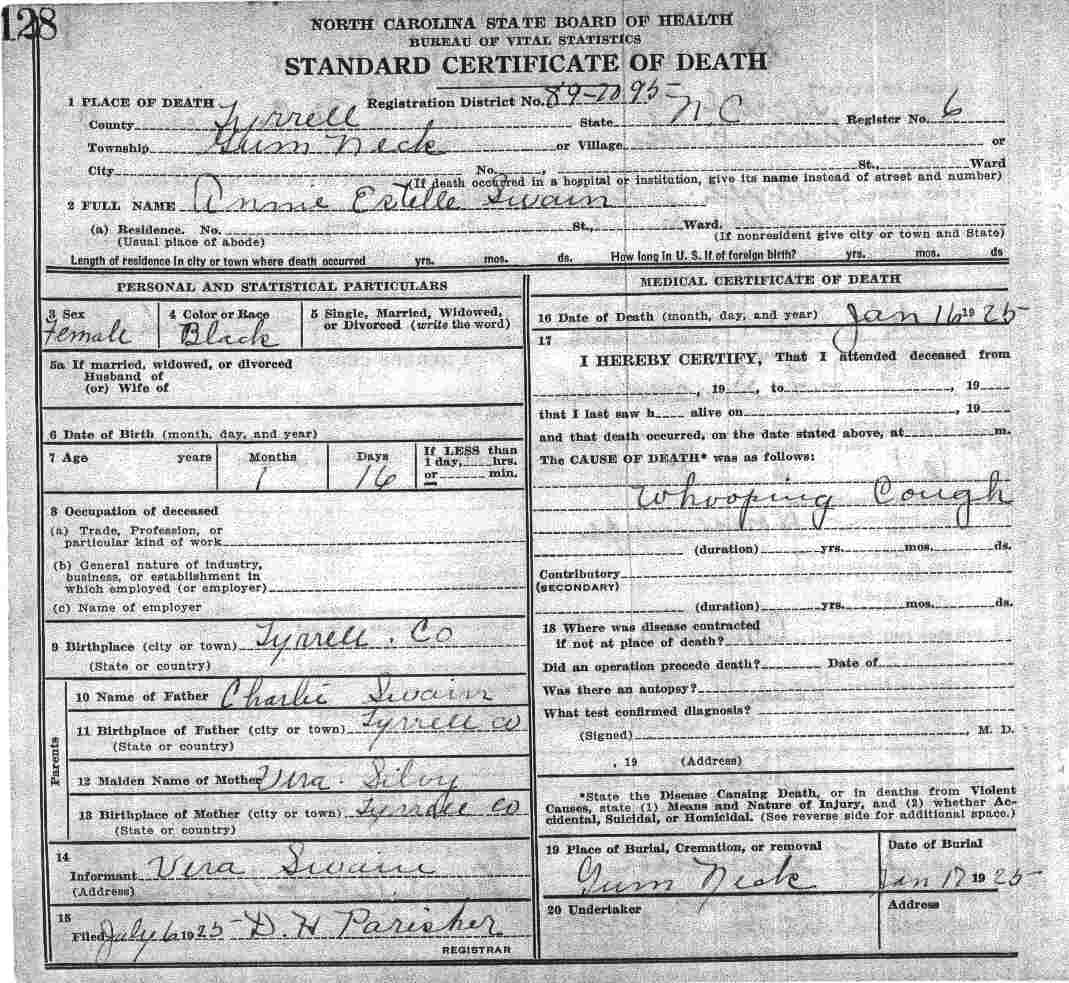 128
NORTH CAROLINA STATE BOARD OF HEALTH
BUREAU OF VITAL STATISTICS
STANDARD CERTIFICATE OF DEATH
1 PLACE OF DEATH Registration District No. 89-7095-
County Tyrrell State N.C Register No. 6
Township Gum Neck or Village or
City No. , St., Ward
(If death occurred in a hospital or institution, give its name instead of street and number)
2 FULL NAME Annie Estelle Swain
(a) Residence. No. St., Ward.
(Usual place of abode) (If nonresident give city or town and State)
Length of residence in city or town where death occurred yrs. mos. ds. How long in U. S. if of foreign birth? yrs. mos. ds
PERSONAL AND STATISTICAL PARTICULARS
3 Sex 4 Color or Race 5 Single, Married, Widowed,
or Divorced (write the word)
Female Black
5a If married, widowed, or divorced
Husband of
(or) Wife of
6 Date of Birth (month, day, and year)
7 Age years Months Days If LESS than
1 day, hrs.
or min.
1 16
8 Occupation of deceased
(a) Trade, Profession, or
particular kind of work
(b) General nature of industry,
business, or establishment in
which employed (or employer)
(c) Name of employer
9 Birthplace (city or town) Tyrrell. Co
(State or country)
Parents
10 Name of Father Charlie Swain
11 Birthplace of Father (city or town) Tyrrell co
(State or country)
12 Maiden Name of Mother Vera. Silvy
13 Birthplace of Mother (city or town) Tyrrell co
(State or country)
14
Informant Vera Swain
(Address)
15
Filed July 6 1925 D. H Parisher
REGISTRAR
MEDICAL CERTIFICATE OF DEATH
16 Date of Death (month, day, and year) Jan 16 1925
17
I HEREBY CERTIFY, That I attended deceased from
, 19 , to , 19
that I last saw h alive on , 19
and that death occurred, on the date stated above, at m.
The CAUSE OF DEATH* was as follows:
Whooping Cough
(duration) yrs. mos. ds.
Contributory
(SECONDARY)
(duration) yrs. mos. ds.
18 Where was disease contracted
if not at place of death?
Did an operation precede death? Date of
Was there an autopsy?
What test confirmed diagnosis?
(Signed) , M. D.
, 19 (Address)
*State the Disease Causing Death, or in deaths from Violent
Causes, state (1) Means and Nature of Injury, and (2) whether Ac-
cidental, Suicidal, or Homicidal. (See reverse side for additional space.)
19 Place of Burial, Cremation, or removal Date of Burial
Gum Neck Jan 17 1925
20 Undertaker Address